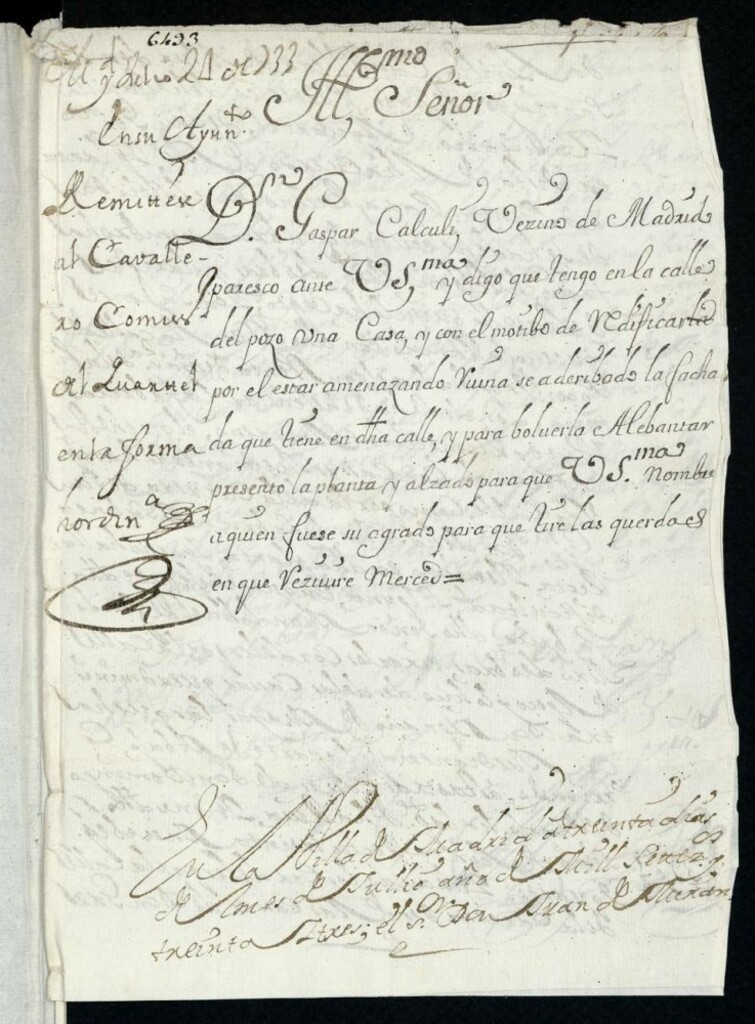 6493
M.d y Julio 24 de 733
Ill.mo Señor
En su Ayun.to
Remitese
al Cavalle-
ro Comiss
del Quartel
en la forma
hordin.a
D.n Gaspar Calculi, Vezino de Madrid
paresco ante VS.ma y digo que tengo en la calle
del pozo una Casa, y con el motibo de Redificarla
por el estar amenazando Ruina se a deribado la facha
da que tiene en dha calle, y para bolverla A lebantar
presento la planta y alzado para que VS.ma Nombre
a quien fuese su agrado para que tire las querdas
en que Rezivire Merced=
En la Villa de Madrid a treinta dias
del mes de Jullio año de Mill Setez.s y
treinta y tres; el s.r Don Juan de